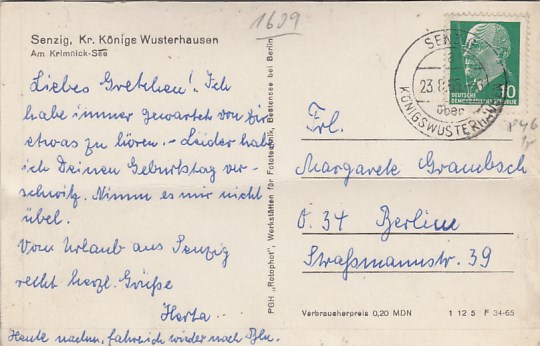 1609
Senzig, Kr. Königs Wusterhausen
Am Krimnick-See
Liebes Gretchen! Ich
habe immer gewartet von Dir
etwas zu hören. - Leider habe
ich Deinen Geburtstag ver-
schwitz. Nimm es mir nicht
übel.
Vom Urlaub aus Senzig
recht herzl. Grüße
Herta
Heute nachm. fahre ich wieder nach Bln.
PGH "Rotophot", Werkstätten für Fototechnik, Bestensee bei Berlin
23.8.
über
KÖNIGSWUSTERHAUSEN
10
DEUTSCHE
DEMOKRATISCHE REPUBLIK
Frl.
Margarete Grambsch
O. 34 Berlin
Straßmannstr. 39
Verbraucherpreis 0,20 MDN
1 12 5 F 34-65